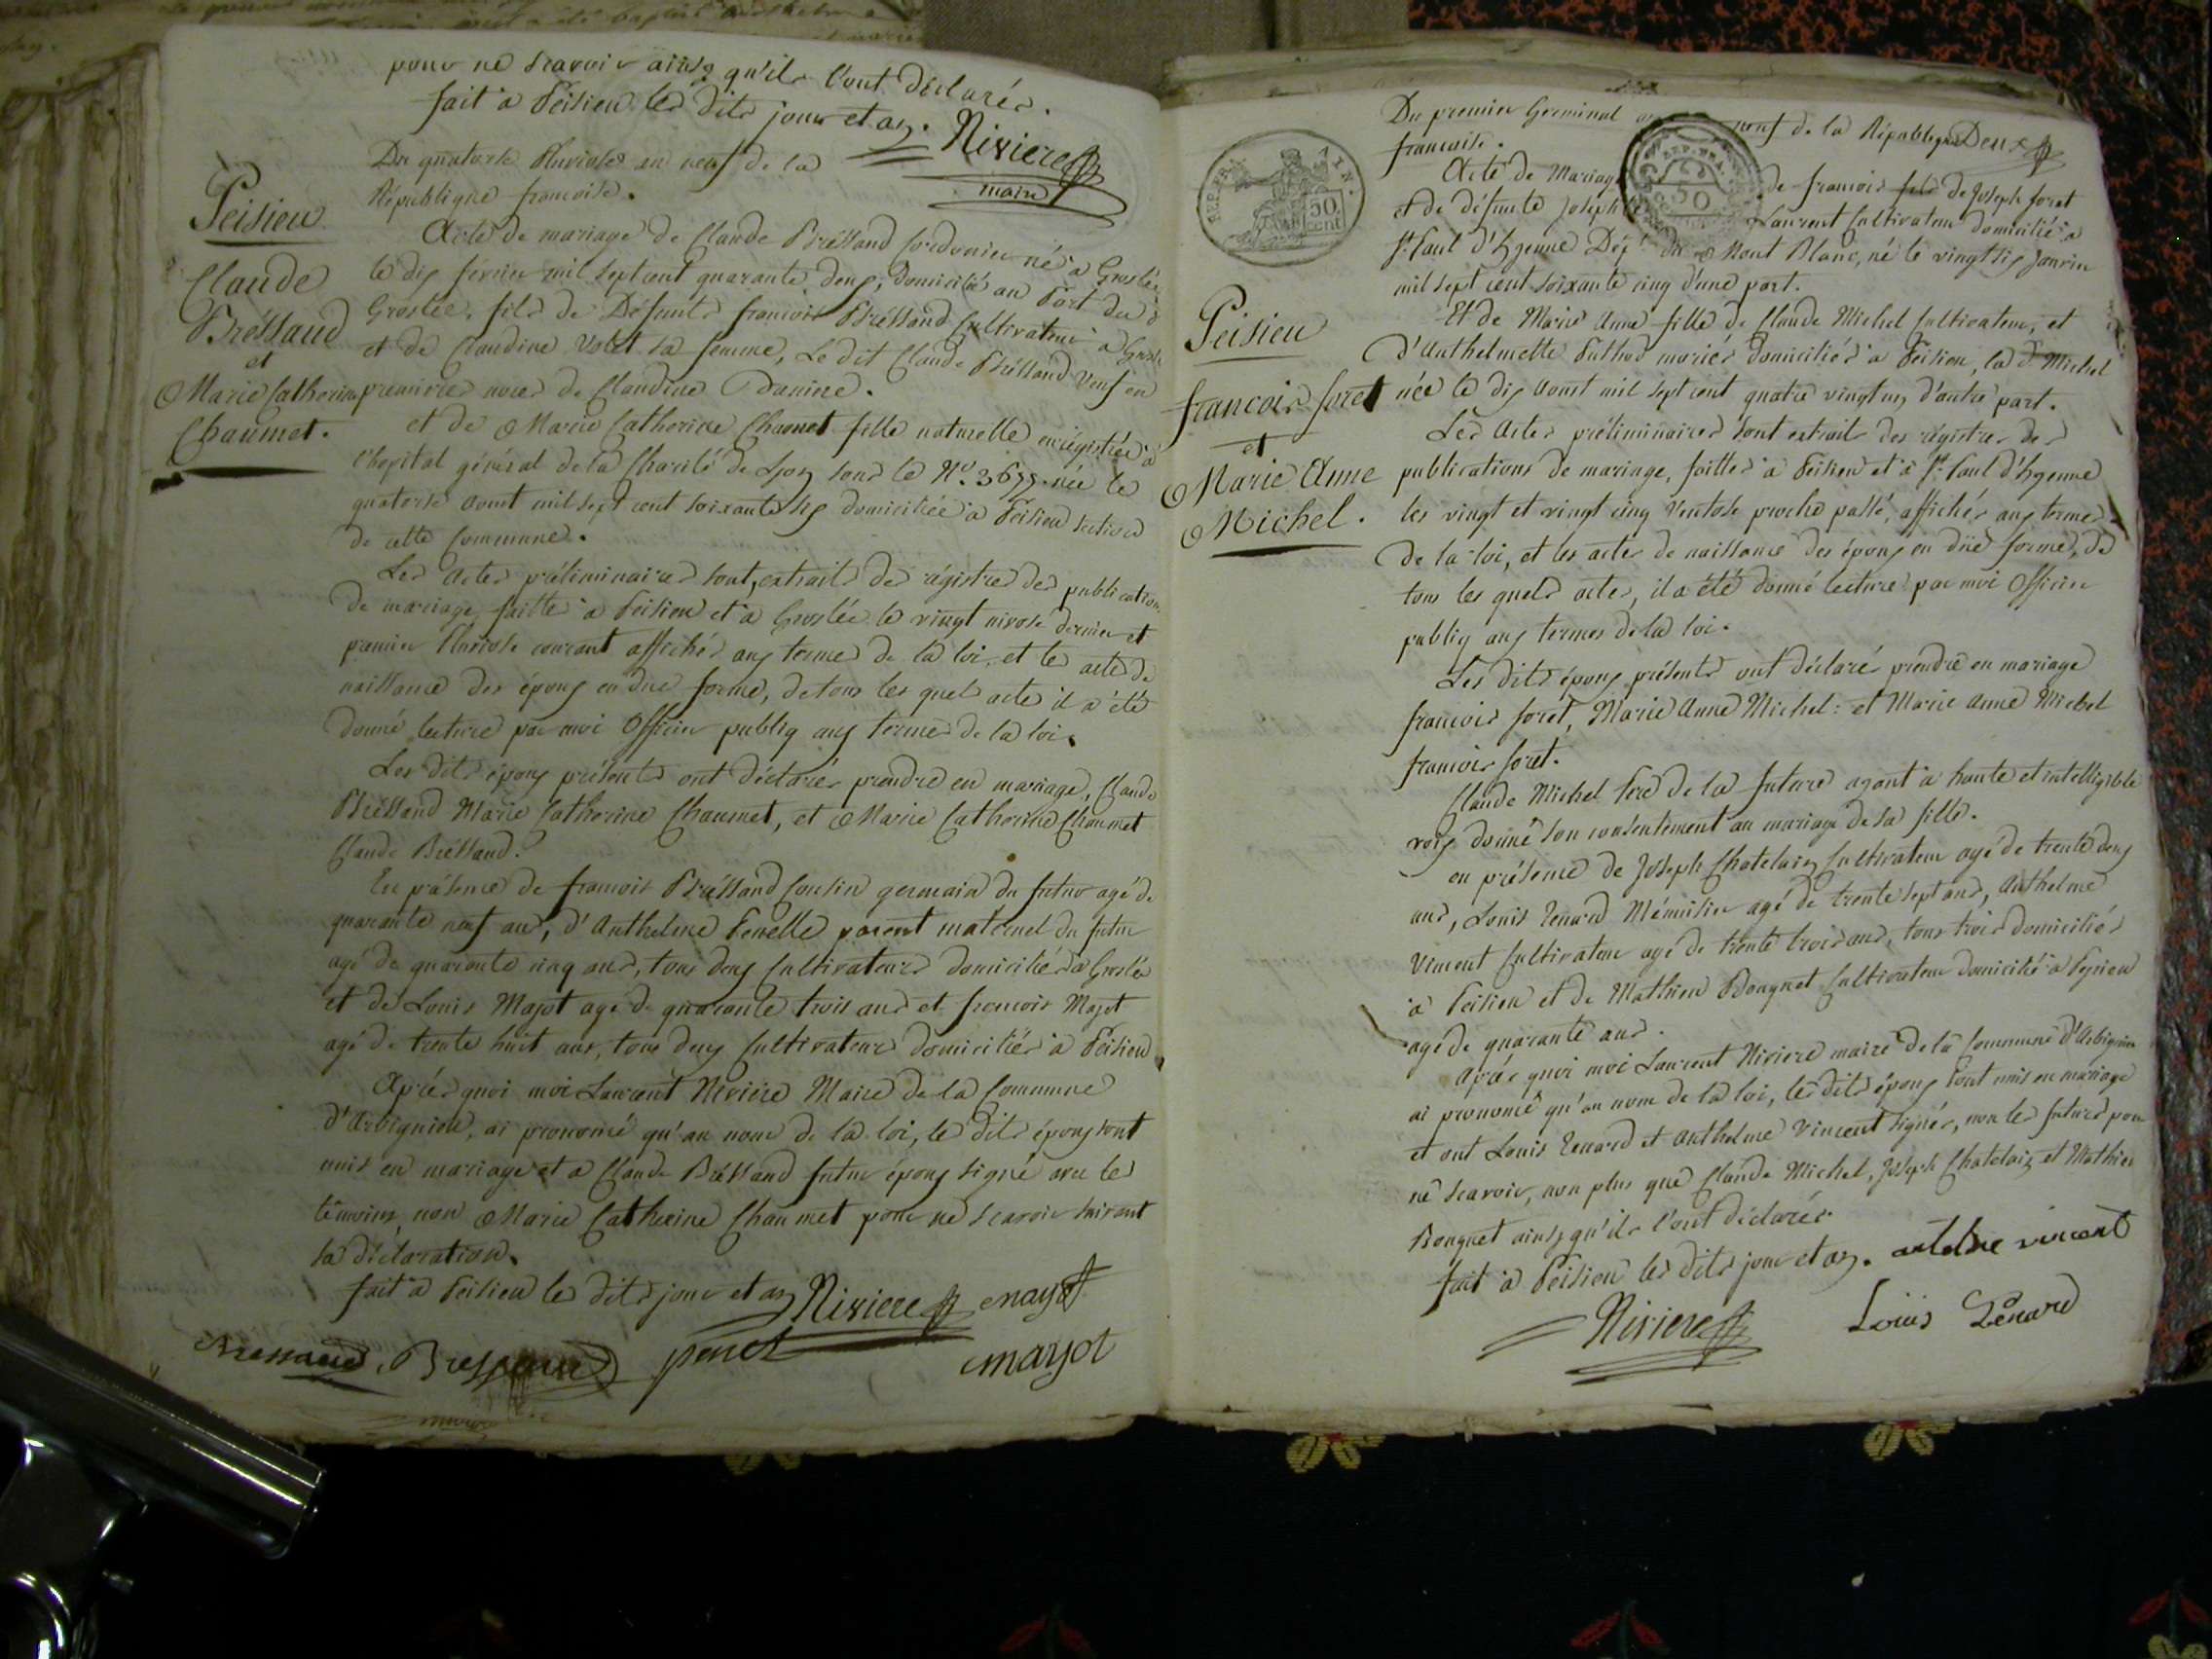 pour ne scavoir ainsy qu'ils l'ont déclarés.
fait a Peisieu les dits jour et an. Riviere
maire
Du quatorse Pluviose an neuf de la
République francoise.
Peisieu
Claude
Bréssaud
et
Marie Catherine
Chaumet.
Acte de mariage de Claude Bréssand Cordonier né a Groslée
le dix février mil sept cent quarante deux, domicilié au Port du d
Groslée, fils de Défunts francois Bréssand Cultivateur a Grosl
et de Claudine Volet sa femme, Le dit Claude Bréssand veuf en
premiere noces de Claudine
et de Marie Catherine Chaumet fille naturelle enrégistrée a
l'hopital général de la Charité de Lyon sous le N°. née le
quatorse aout mil sept cent soixante six domiciliée a Peisieu section
de cette Commune.
Les actes préliminaires sont, extraits de régistres des publications
de mariage faitte a Peisieu et a Groslée le vingt nivose dernier et
premier Pluviose courant affichés aux termes de la loi, et le acte de
naissance des époux en due forme, de tous les quels acte il a été
donné lecture par moi Officier publiq aux termes de la loi.
Les dits époux présents ont déclarés prendre en mariage, Claude
Bréssand Marie Catherine Chaumet, et Marie Catherine Chaumet
Claude Bréssand.
En présence de francois Bréssand Cousin germain du futur agé de
quarante neuf ans, d'Anthelme Penelle parent maternel du futur
agé de quarante cinq ans, tous deux Cultivateurs domiciliés a Groslée
et de Louis Majot agé de quarante trois ans et francois Majot
agé de trente huit ans, tous deux Cultivateurs domiciliés a Peisieu
Après quoi moi Laurent Riviere Maire de la Commune
d'Arbignieu, ai prononcé qu'au nom de la loi, le dits époux sont
unis en mariage et a Claude Bréssand futur époux signé avec les
témoins, non Marie Catherine Chaumet pour ne scavoir suivant
sa déclaration.
fait a Peisieu le dits jour et an Riviere mayot
Bressand mayot
Du premier Germinal an neuf de la République Deux
francoise.
REP. FRA.
50
cent
50
Peisieu
francois foret
et
Marie Anne
Michel.
Acte de Mariage de francois fils de Joseph foret
et de défunte Josephte Laurent Cultivateur domicilié a
St. Paul d'Hyenne Dépt. du Mont Blanc, né le vingt six Janvier
mil sept cent soixante cinq d'une part.
Et de Marie Anne fille de Claude Michel Cultivateur, et
d'Anthelmette Puthod mariés domiciliés a Peisieu, la de Michel
née le dix aout mil sept cent quatre vingt un d'autre part.
Les actes préliminaires sont extraits des régistres des
publications de mariage, faittes a Peisieu et a St. Paul d'Hyenne
les vingt et vingt cinq Ventose proche passé, affichés aux termes
de la loi, et les actes de naissance des époux en düe forme, de
tous les quels actes, il a été donné lecture par moi Officier
publiq aux termes de la loi.
Les dits époux présents ont déclaré prendre en mariage
francois foret, Marie Anne Michel: et Marie Anne Michel
francois foret.
Claude Michel Pere de la future ayant a haute et intelligible
voix donné son consentement au mariage de sa fille.
en présence de Joseph Chatelain Cultivateur agé de trente deux
ans, Louis Penard Ménuisier agé de trente sept ans, Anthelme
Vincent Cultivateur agé de trente trois ans, tous trois domiciliés
a Peisieu et de Mathieu Bouquet Cultivateur domicilié a Peyrieu
agé de quarante ans.
après quoi moi Laurent Riviere maire de la Commune d'Arbignieu
ai prononcé qu'au nom de la loi, les dits époux sont unis en mariage
et ont Louis Penard et Anthelme Vincent signés, non les futurs pour
ne scavoir, non plus que Claude Michel, Joseph Chatelain et Mathieu
Bouquet ainsy qu'ils l'ont déclarés.
fait a Peisieu les dits jour et an. antelme vincent
Riviere Loüis Penard